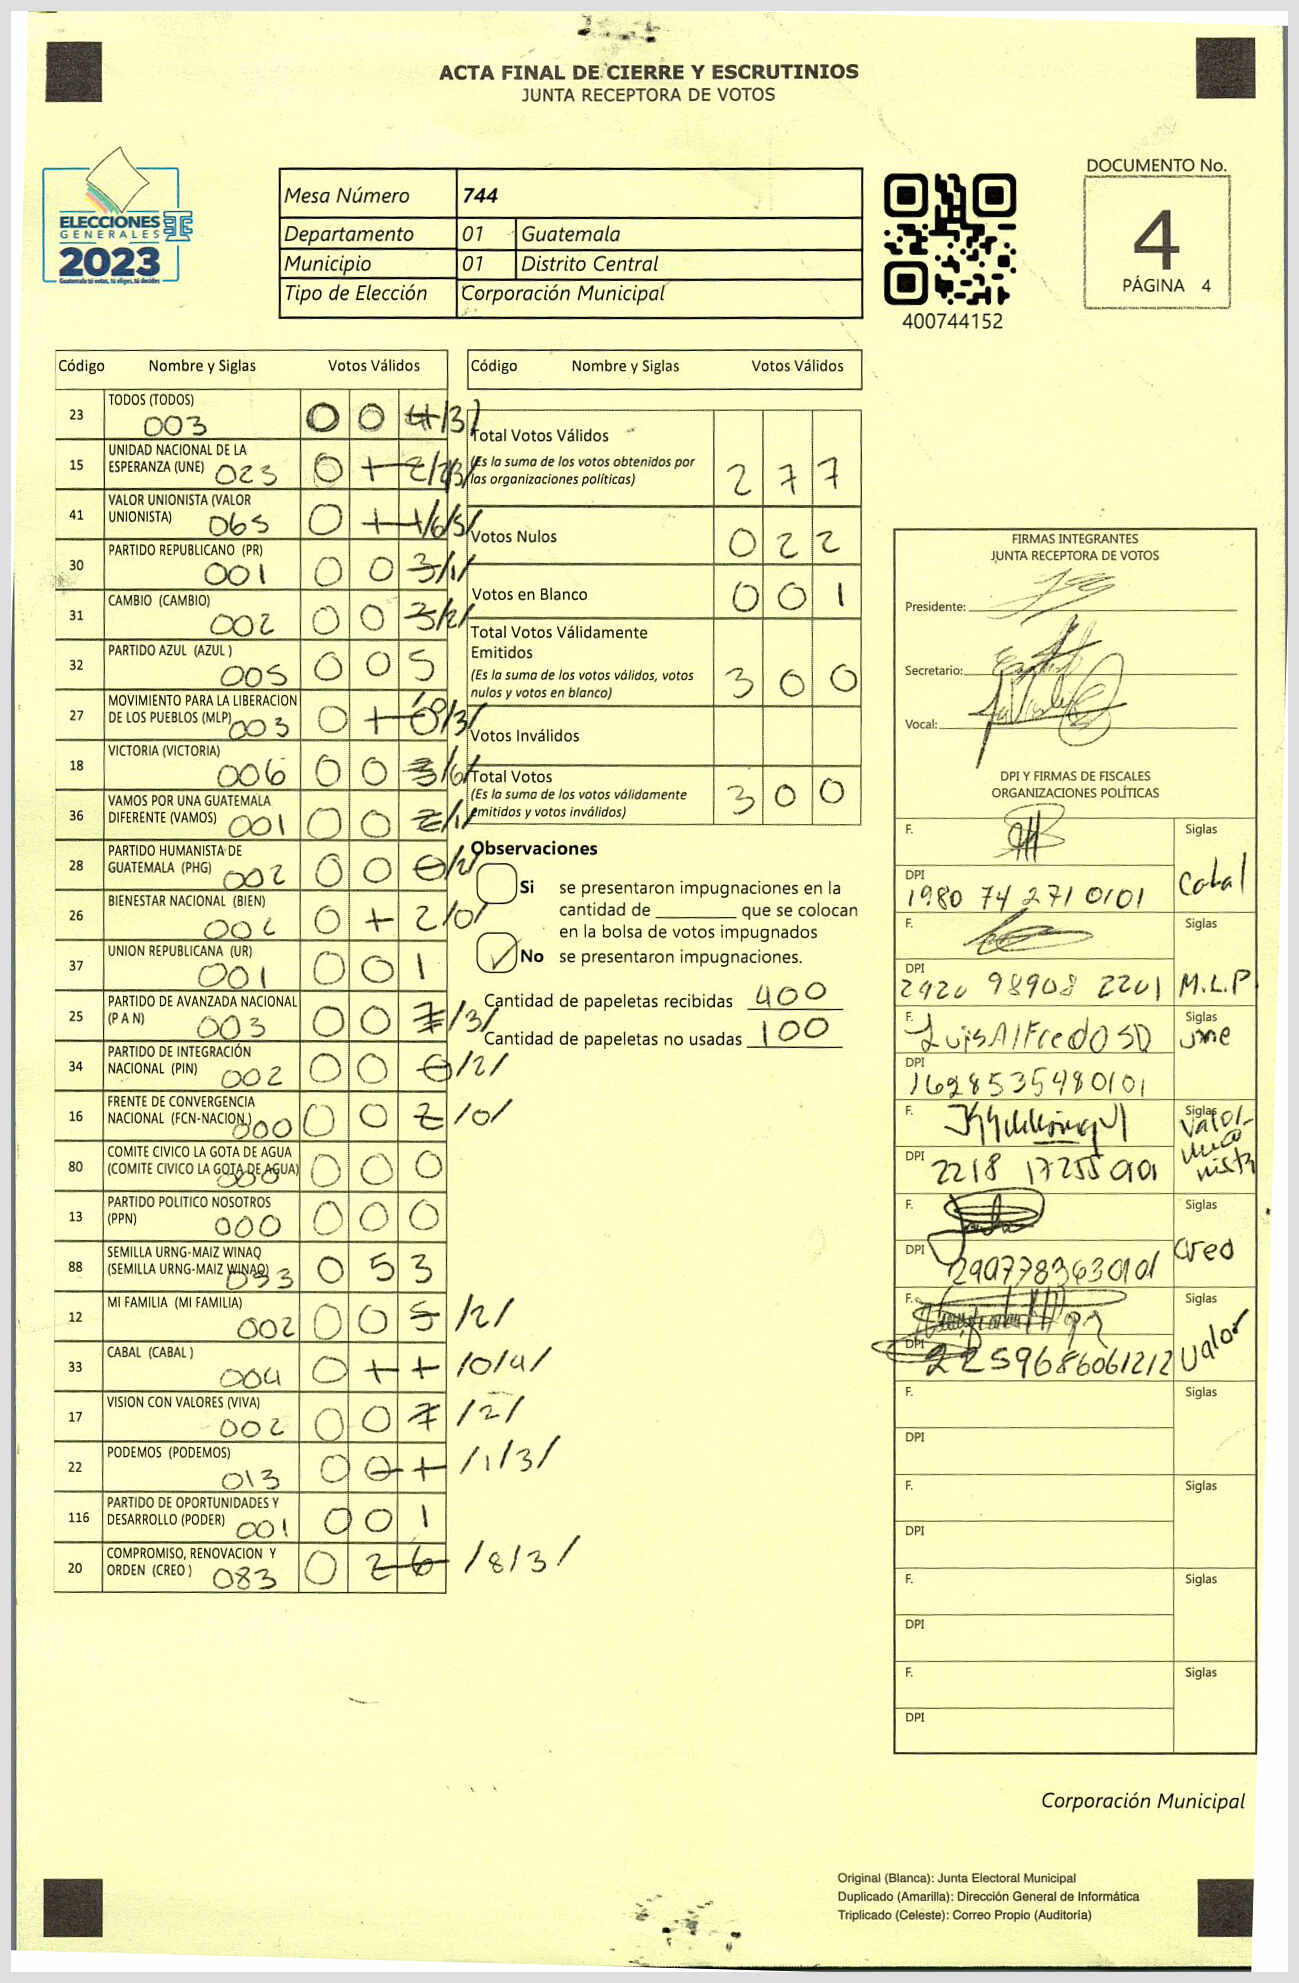 ACTA FINAL DE CIERRE Y ESCRUTINIOS
JUNTA RECEPTORA DE VOTOS
ELECCIONES
GENERALES
2023
Guatemala tú votas, tú eliges, tú decides
Mesa Número 744
Departamento 01 Guatemala
Municipio 01 Distrito Central
Tipo de Elección Corporación Municipal
400744152
DOCUMENTO No.
4
PÁGINA 4
Código Nombre y Siglas Votos Válidos
23 TODOS (TODOS)
003 0 0 4/3/
15 UNIDAD NACIONAL DE LA
ESPERANZA (UNE) 023 0 1 2/2/3/
41 VALOR UNIONISTA (VALOR
UNIONISTA) 065 0 1 1/6/5/
30 PARTIDO REPUBLICANO (PR)
001 0 0 3/1/
31 CAMBIO (CAMBIO)
002 0 0 3/2/
32 PARTIDO AZUL (AZUL )
005 0 0 5
27 MOVIMIENTO PARA LA LIBERACION
DE LOS PUEBLOS (MLP) 003 0 /0/3/
18 VICTORIA (VICTORIA)
006 0 0 3/6/
36 VAMOS POR UNA GUATEMALA
DIFERENTE (VAMOS) 001 0 0 2/1/
28 PARTIDO HUMANISTA DE
GUATEMALA (PHG) 002 0 0 0/2/
26 BIENESTAR NACIONAL (BIEN)
002 0 1 2/0/
37 UNION REPUBLICANA (UR)
001 0 0 1
25 PARTIDO DE AVANZADA NACIONAL
(P A N) 003 0 0 7/3/
34 PARTIDO DE INTEGRACIÓN
NACIONAL (PIN) 002 0 0 0/2/
16 FRENTE DE CONVERGENCIA
NACIONAL (FCN-NACION) 000 0 0 2/0/
80 COMITE CIVICO LA GOTA DE AGUA
(COMITE CIVICO LA GOTA DE AGUA) 000 0 0 0
13 PARTIDO POLITICO NOSOTROS
(PPN) 000 0 0 0
88 SEMILLA URNG-MAIZ WINAQ
(SEMILLA URNG-MAIZ WINAQ) 053 0 5 3
12 MI FAMILIA (MI FAMILIA)
002 0 0 5 /2/
33 CABAL (CABAL )
004 0 1 1 /0/4/
17 VISION CON VALORES (VIVA)
002 0 0 7 /2/
22 PODEMOS (PODEMOS)
013 0 0 1 /1/3/
116 PARTIDO DE OPORTUNIDADES Y
DESARROLLO (PODER) 001 0 0 1
20 COMPROMISO, RENOVACION Y
ORDEN (CREO ) 083 0 2 6 /8/3/
Código Nombre y Siglas Votos Válidos
Total Votos Válidos
(Es la suma de los votos obtenidos por
las organizaciones políticas) 2 7 7
Votos Nulos 0 2 2
Votos en Blanco 0 0 1
Total Votos Válidamente
Emitidos
(Es la suma de los votos válidos, votos
nulos y votos en blanco) 3 0 0
Votos Inválidos
Total Votos
(Es la suma de los votos válidamente
emitidos y votos inválidos) 3 0 0
Observaciones
Si se presentaron impugnaciones en la
cantidad de ________ que se colocan
en la bolsa de votos impugnados
No se presentaron impugnaciones.
Cantidad de papeletas recibidas 400
Cantidad de papeletas no usadas 100
FIRMAS INTEGRANTES
JUNTA RECEPTORA DE VOTOS
Presidente:
Secretario:
Vocal:
DPI Y FIRMAS DE FISCALES
ORGANIZACIONES POLÍTICAS
F. Siglas
DPI
1980 74 271 0101 Cabal
F. Siglas
DPI
2920 98908 2201 M.L.P
F. Luis Alfredo SD Siglas
une
DPI
1628535480101
F. Siglas
Valor unionista
DPI
2218 17255 0101
F. Siglas
DPI
2907783630101 Creo
F. Siglas
DPI
2259686061212 Valor
F. Siglas
DPI
F. Siglas
DPI
F. Siglas
DPI
F. Siglas
DPI
Corporación Municipal
Original (Blanca): Junta Electoral Municipal
Duplicado (Amarilla): Dirección General de Informática
Triplicado (Celeste): Correo Propio (Auditoría)